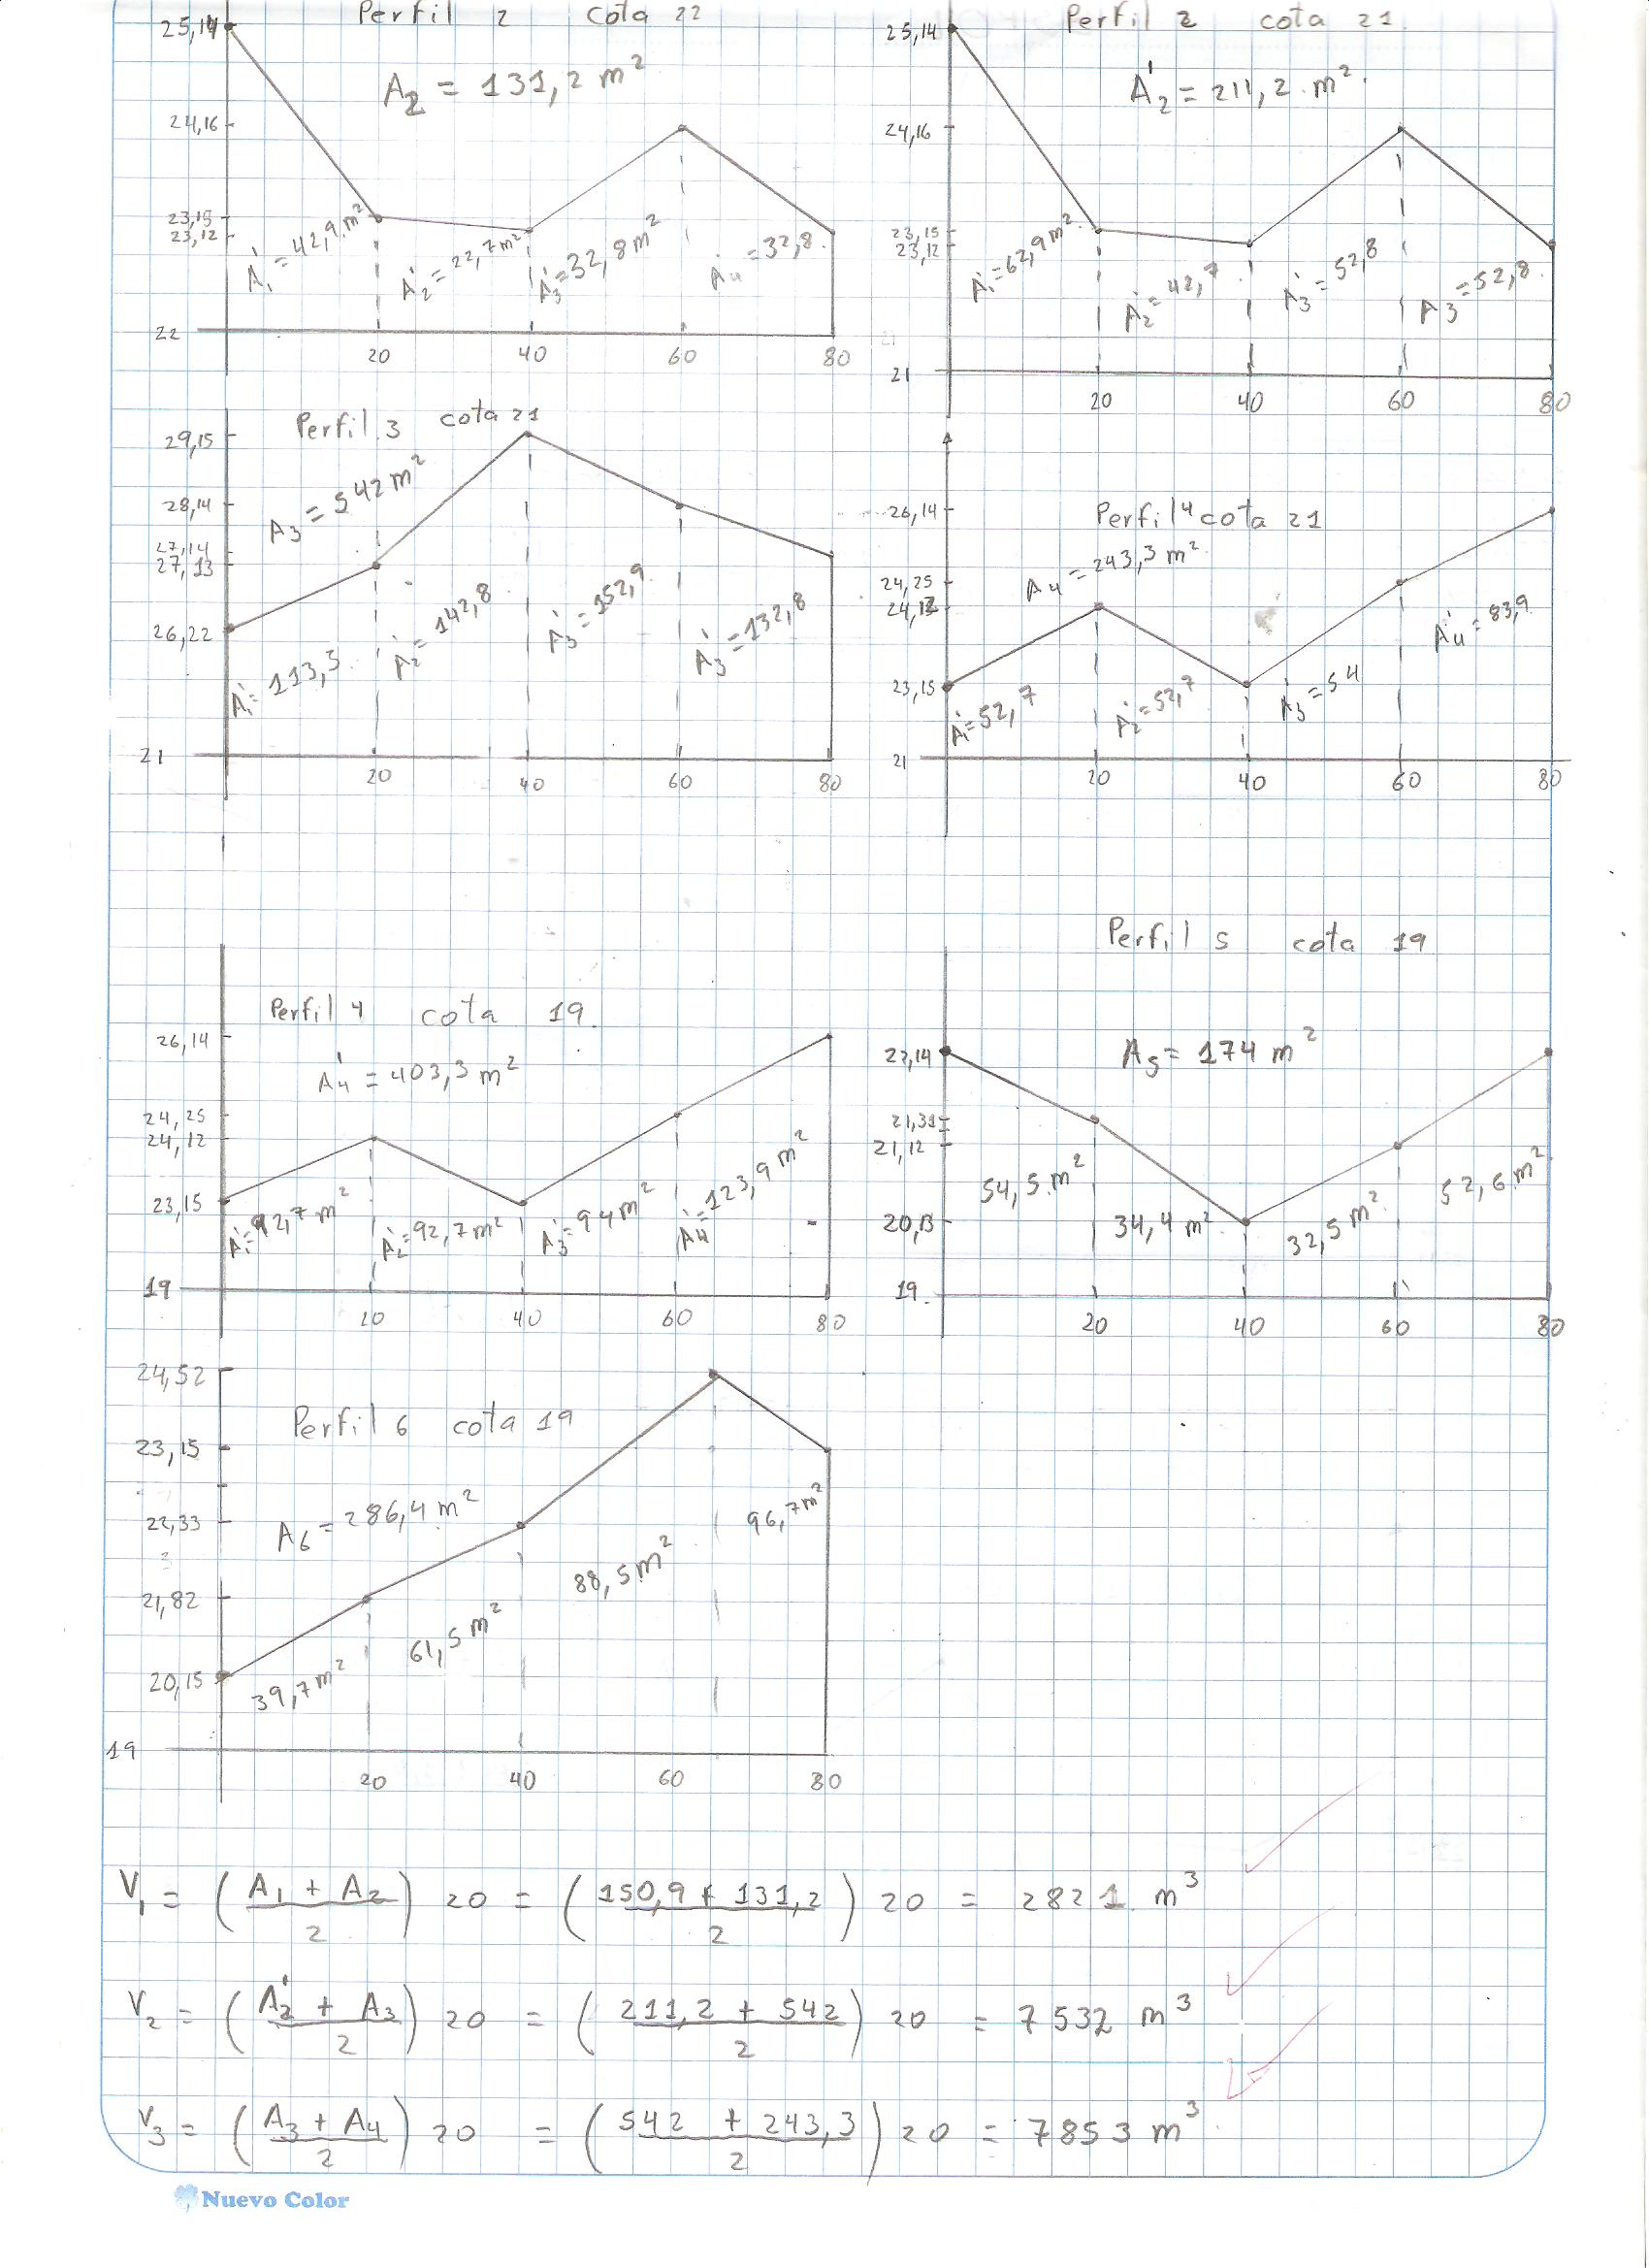 Perfil 2 cota 22
25,14
A2 = 131,2 m²
24,16
23,15
23,12
A'1 = 42,9 m²
A'2 = 22,7 m²
A'3 = 32,8 m²
A'4 = 32,8
22
20 40 60 80
Perfil 2 cota 21
25,14
A'2 = 211,2 m²
24,16
23,15
23,12
A'1 = 62,9 m²
A'2 = 42,7
A'3 = 52,8
A'3 = 52,8
21
20 40 60 80
Perfil 3 cota 21
29,15
A3 = 542 m²
28,14
27,14
27,13
26,22
A'1 = 113,5
A'2 = 142,8
A'3 = 152,9
A'3 = 132,8
21
20 40 60 80
Perfil 4 cota 21
26,14
A4 = 243,3 m²
24,25
24,12
23,15
A'1 = 52,7
A'2 = 52,7
A'3 = 54
A'4 = 83,9
21
20 40 60 80
Perfil 4 cota 19
26,14
A'4 = 403,3 m²
24,25
24,12
23,15
A'1 = 92,7 m²
A'2 = 92,7 m²
A'3 = 94 m²
A'4 = 123,9 m²
19
20 40 60 80
Perfil 5 cota 19
22,14
A5 = 174 m²
21,31
21,12
20,13
54,5 m²
34,4 m²
32,5 m²
52,6 m²
19
20 40 60 80
24,52
Perfil 6 cota 19
23,15
A6 = 286,4 m²
22,33
21,82
20,15
39,7 m²
61,5 m²
88,5 m²
96,7 m²
19
20 40 60 80
V1 = (A1 + A2 / 2) 20 = (150,9 + 131,2 / 2) 20 = 2821 m³
V2 = (A'2 + A3 / 2) 20 = (211,2 + 542 / 2) 20 = 7532 m³
V3 = (A3 + A4 / 2) 20 = (542 + 243,3 / 2) 20 = 7853 m³
Nuevo Color